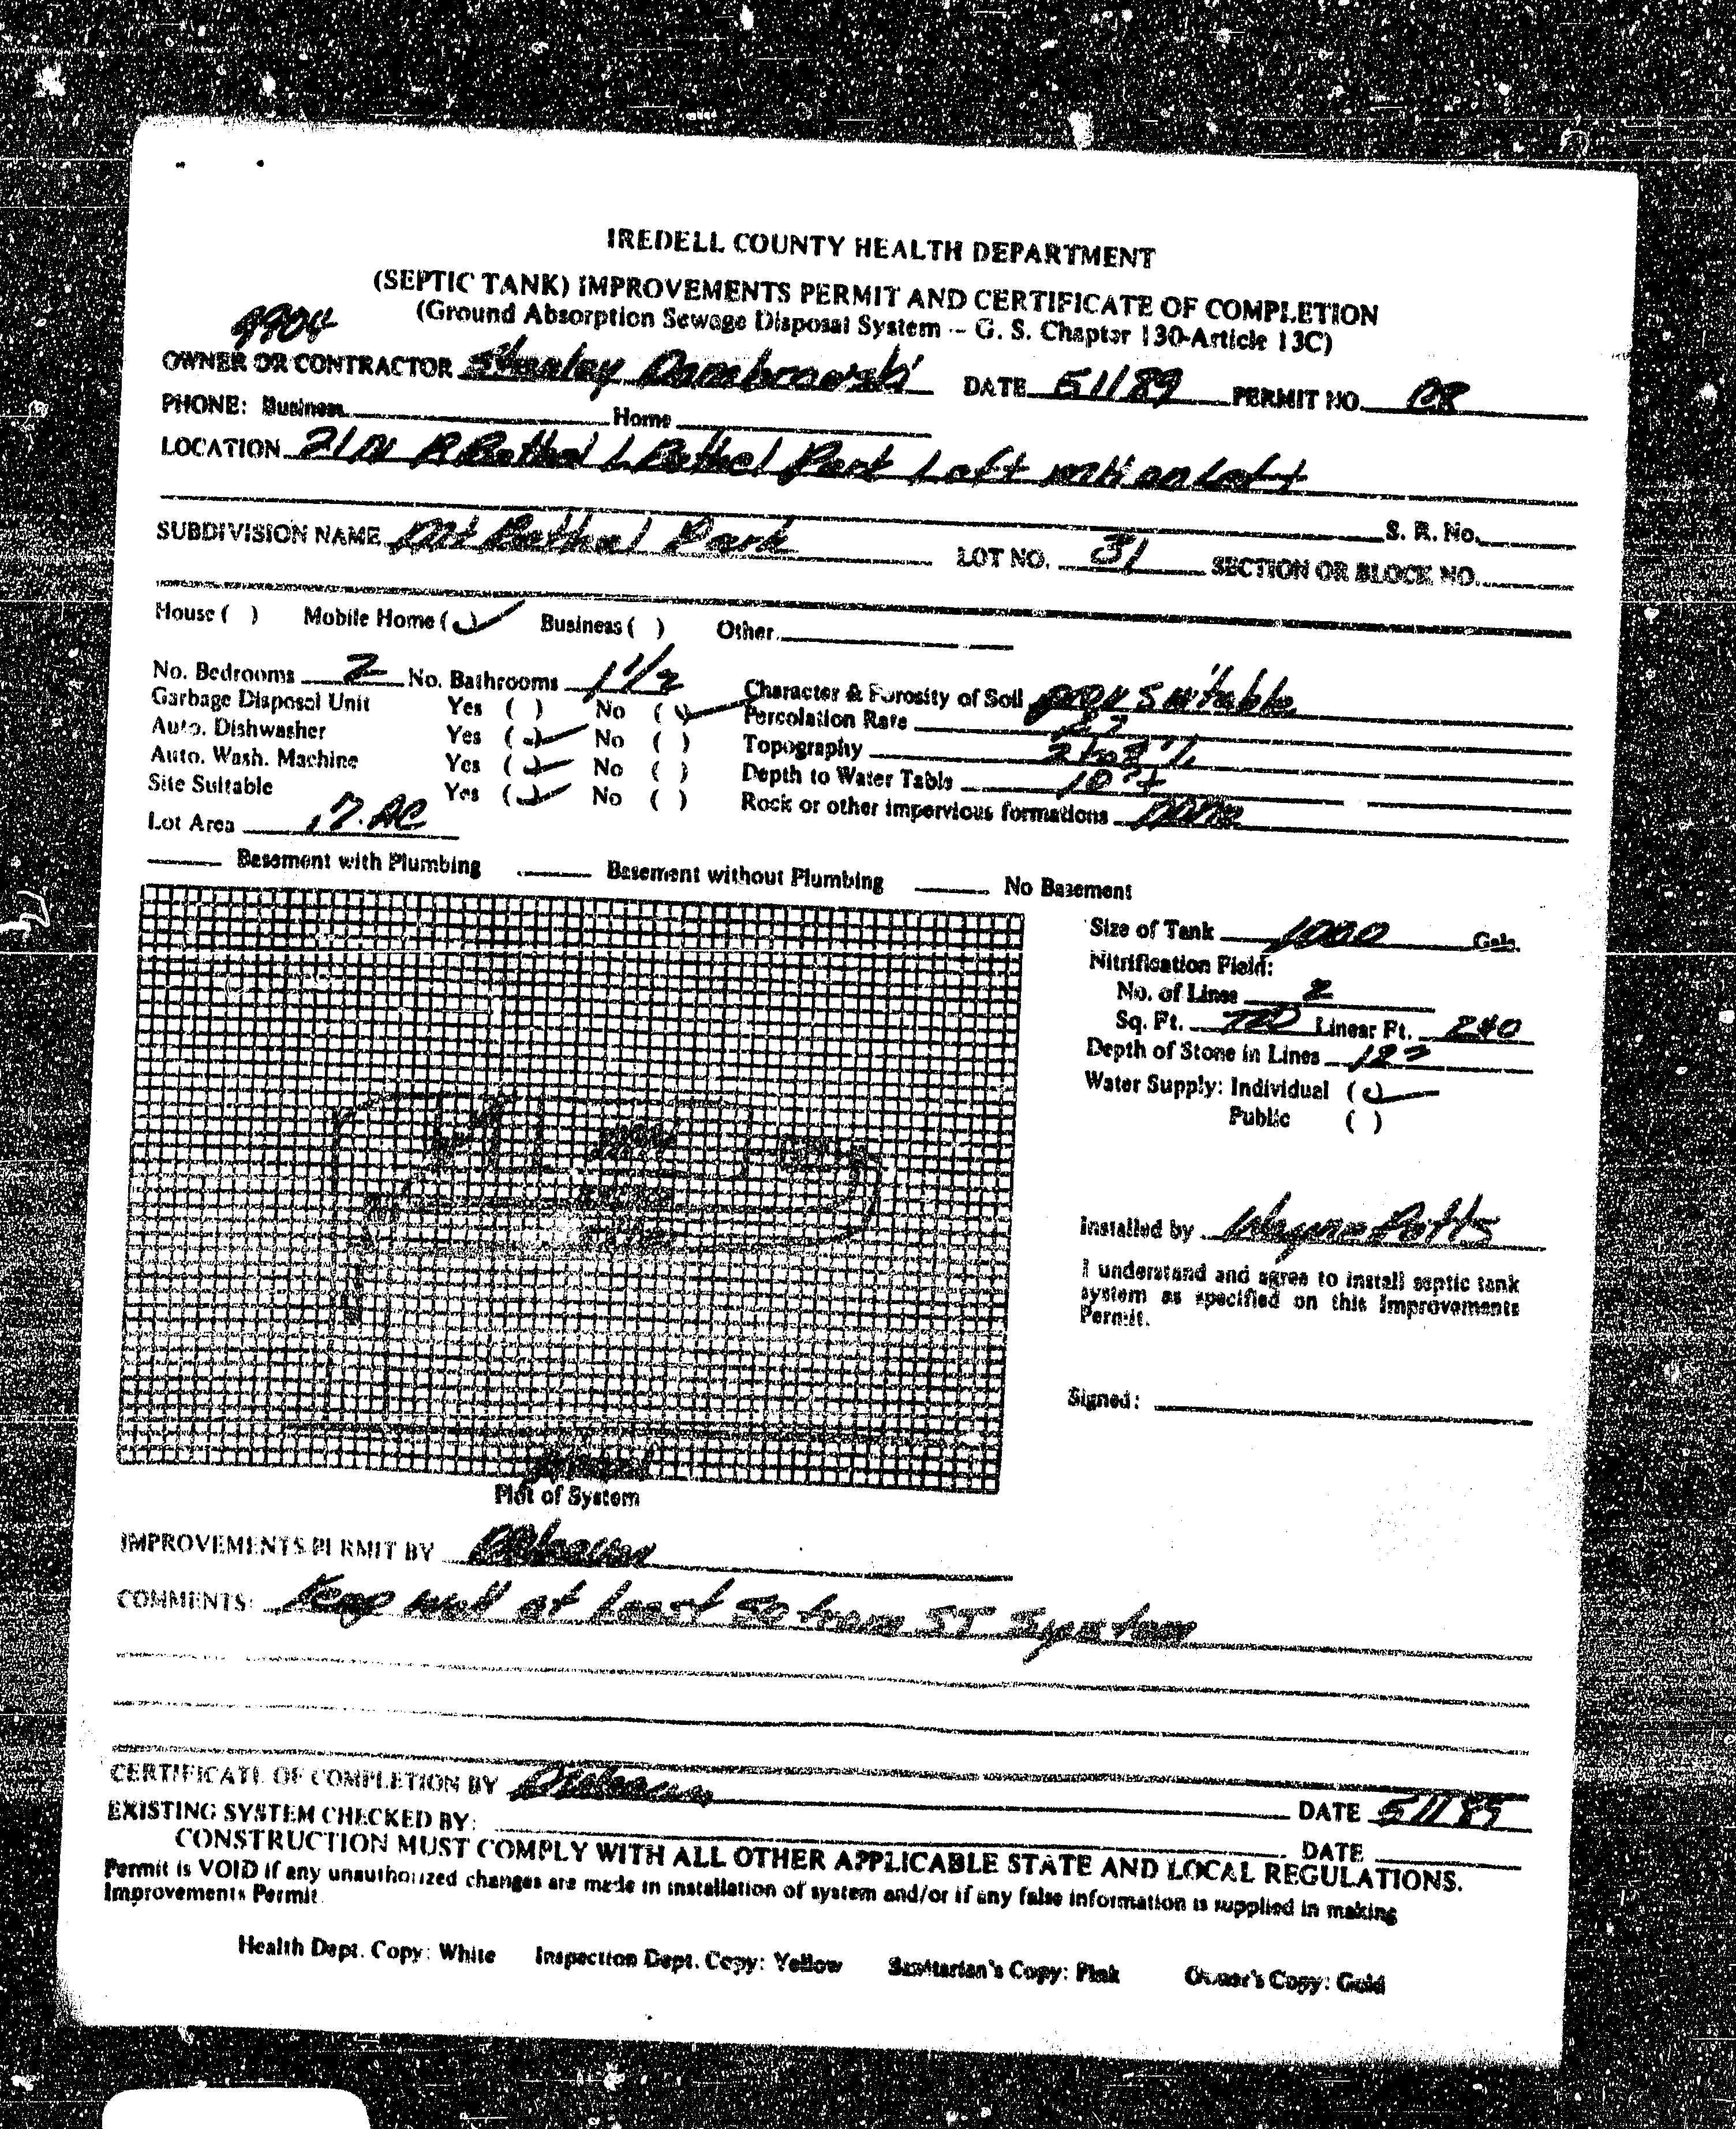 IREDELL COUNTY HEALTH DEPARTMENT
(SEPTIC TANK) IMPROVEMENTS PERMIT AND CERTIFICATE OF COMPLETION
(Ground Absorption Sewage Disposal System -- G. S. Chapter 130-Article 13C)
9904
OWNER OR CONTRACTOR Stanley Dambrowski DATE 5 11 89 PERMIT NO. 
PHONE: Business Home
LOCATION 21 N R Bethel L Bethel Park Left on Left
S. R. No.
SUBDIVISION NAME Mt Bethel Park LOT NO. 31 SECTION OR BLOCK NO.
House ( ) Mobile Home (✓) Business ( ) Other
No. Bedrooms 2 No. Bathrooms 1 1/2 Character & Porosity of Soil prov suitable
Garbage Disposal Unit Yes ( ) No (✓) Percolation Rate
Auto. Dishwasher Yes (✓) No ( ) Topography 2 to 8 %
Auto. Wash. Machine Yes (✓) No ( ) Depth to Water Table
Site Suitable Yes (✓) No ( ) Rock or other impervious formations none
Lot Area
Basement with Plumbing Basement without Plumbing No Basement
Size of Tank 1000 Gals.
Nitrification Field:
No. of Lines 2
Sq. Ft. 720 Linear Ft. 240
Depth of Stone in Lines
Water Supply: Individual (✓)
Public ( )
Installed by Wayne Potts
I understand and agree to install septic tank
system as specified on this Improvements
Permit.
Signed:
Plot of System
IMPROVEMENTS PERMIT BY
COMMENTS: Keep well at least 50 from ST System
CERTIFICATE OF COMPLETION BY DATE 5 11 89
EXISTING SYSTEM CHECKED BY: DATE
CONSTRUCTION MUST COMPLY WITH ALL OTHER APPLICABLE STATE AND LOCAL REGULATIONS.
Permit is VOID if any unauthorized changes are made in installation of system and/or if any false information is supplied in making
Improvements Permit.
Health Dept. Copy: White Inspection Dept. Copy: Yellow Sanitarian's Copy: Pink Owner's Copy: Gold